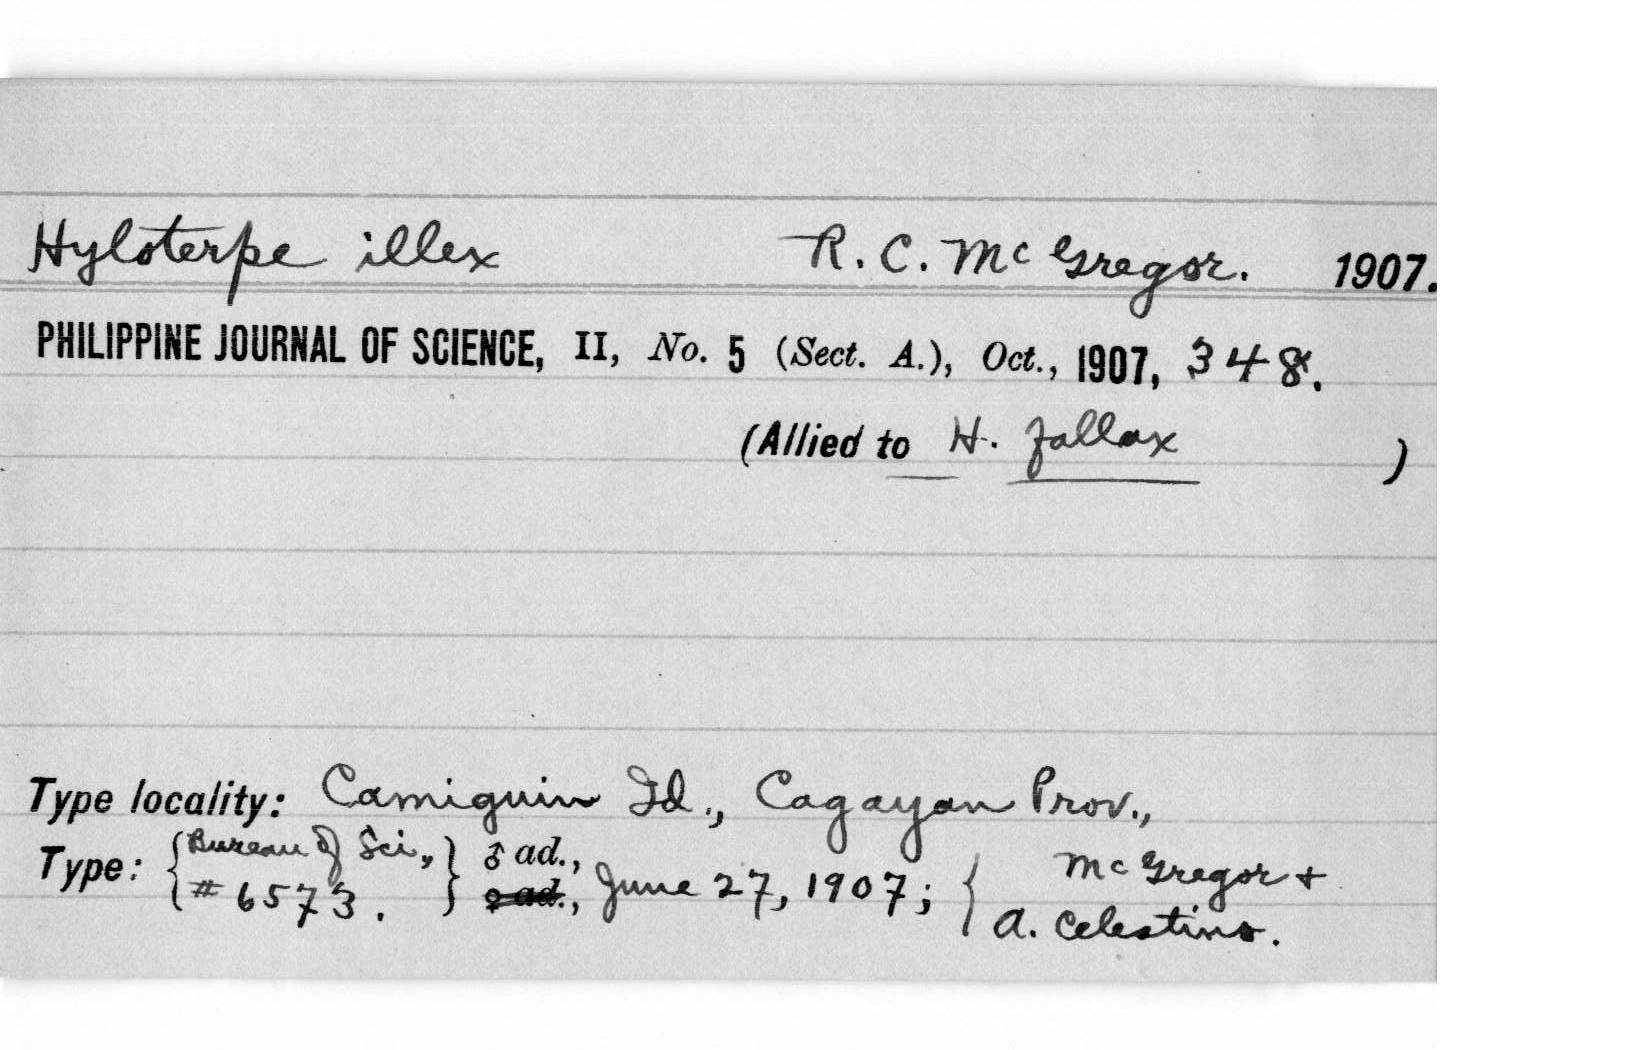 Hyloterpe illex R. C. McGregor. 1907.
PHILIPPINE JOURNAL OF SCIENCE, II, No. 5 (Sect. A.), Oct., 1907, 348.
(Allied to H. fallax )
Type locality: Camiguin Id., Cagayan Prov.,
Type: { Bureau of Sci., } ♂ ad., McGregor +
# 6573. ♀ ad., June 27, 1907; { A. Celestino.